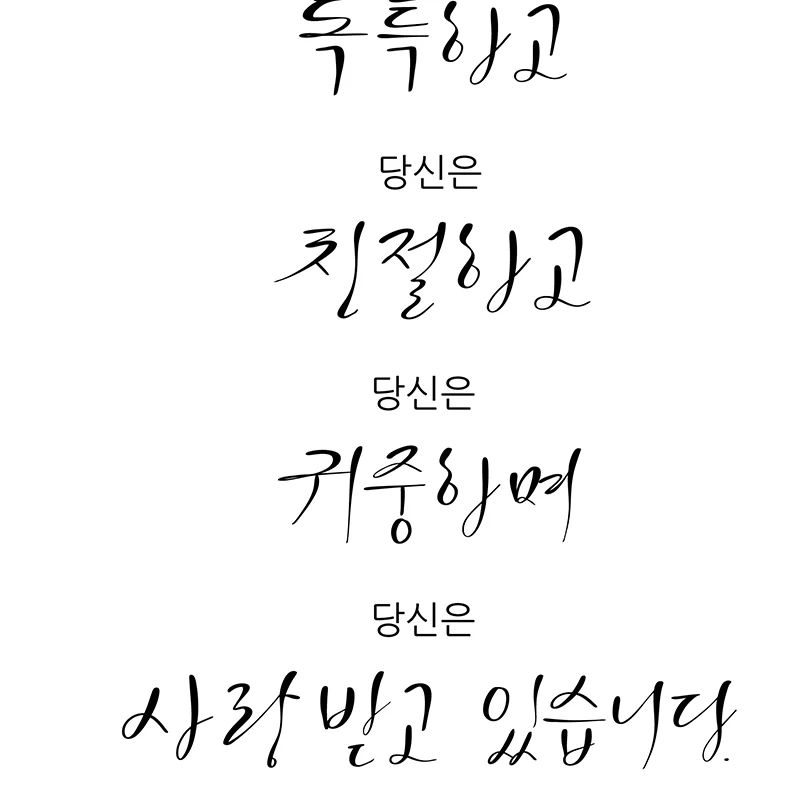 독특하고
당신은
친절하고
당신은
귀중하며
당신은
사랑 받고 있습니다.